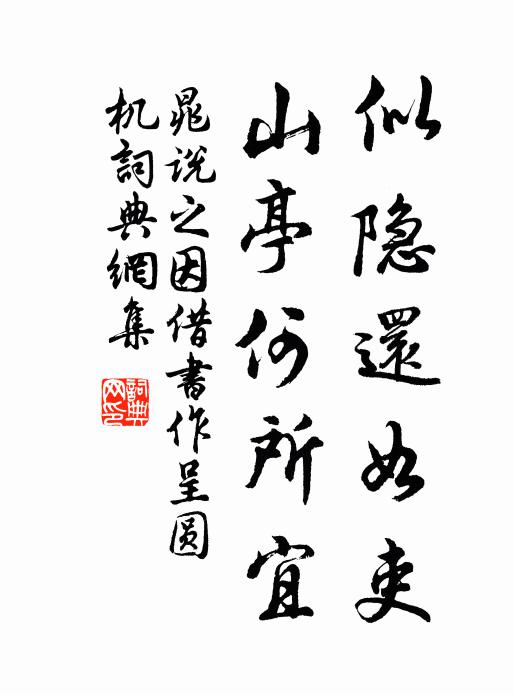 似隐還如吏
山亭何所宜
晁说之因借書作呈圆
机詞典網集
詞典网印